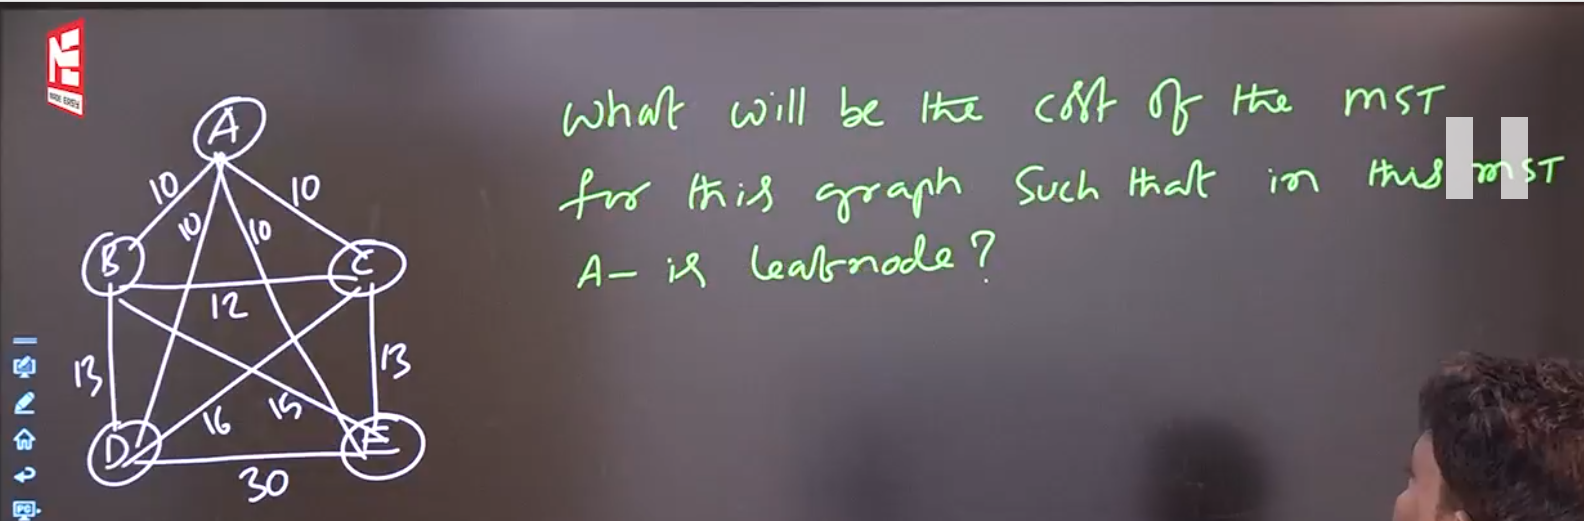 MADE EASY
What will be the cost of the MST
for this graph Such that in this MST
A- is leafnode?
A
10
10
10
10
B
C
12
13
13
16
15
D
E
30